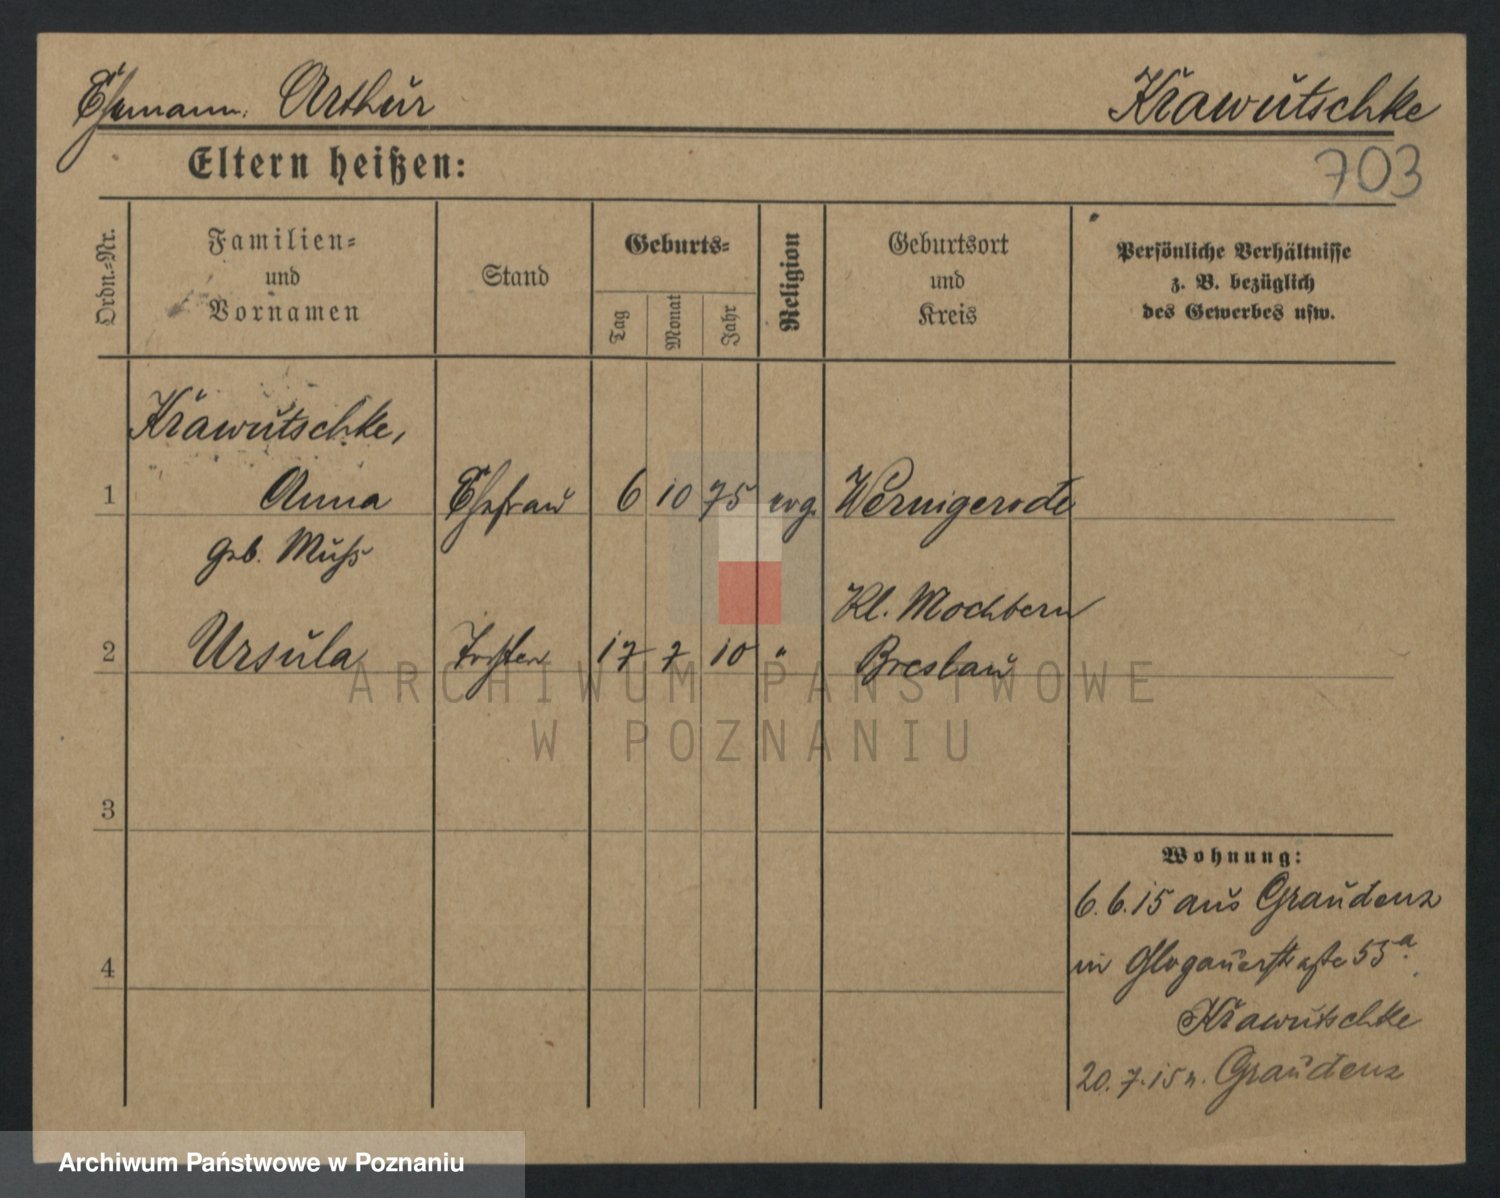 Ehemann: Arthur Krawutschke
703
Eltern heißen:
Ordn.=Nr.
Familien=
und
Vornamen
Stand
Geburts=
Tag
Monat
Jahr
Religion
Geburtsort
und
Kreis
Persönliche Verhältnisse
z. B. bezüglich
des Gewerbes usw.
Krawutschke,
1 Anna Ehefrau 6 10 75 evg. Wernigerode
geb. Muhs
Kl. Mochbern
2 Ursula Tochter 17 7 10 " Breslau
3
4
Wohnung:
6.6.15 aus Graudenz
in Glogauerstraße 55a.
Krawutschke
20.7.15 n. Graudenz
ARCHIWUM PAŃSTWOWE
W POZNANIU
Archiwum Państwowe w Poznaniu